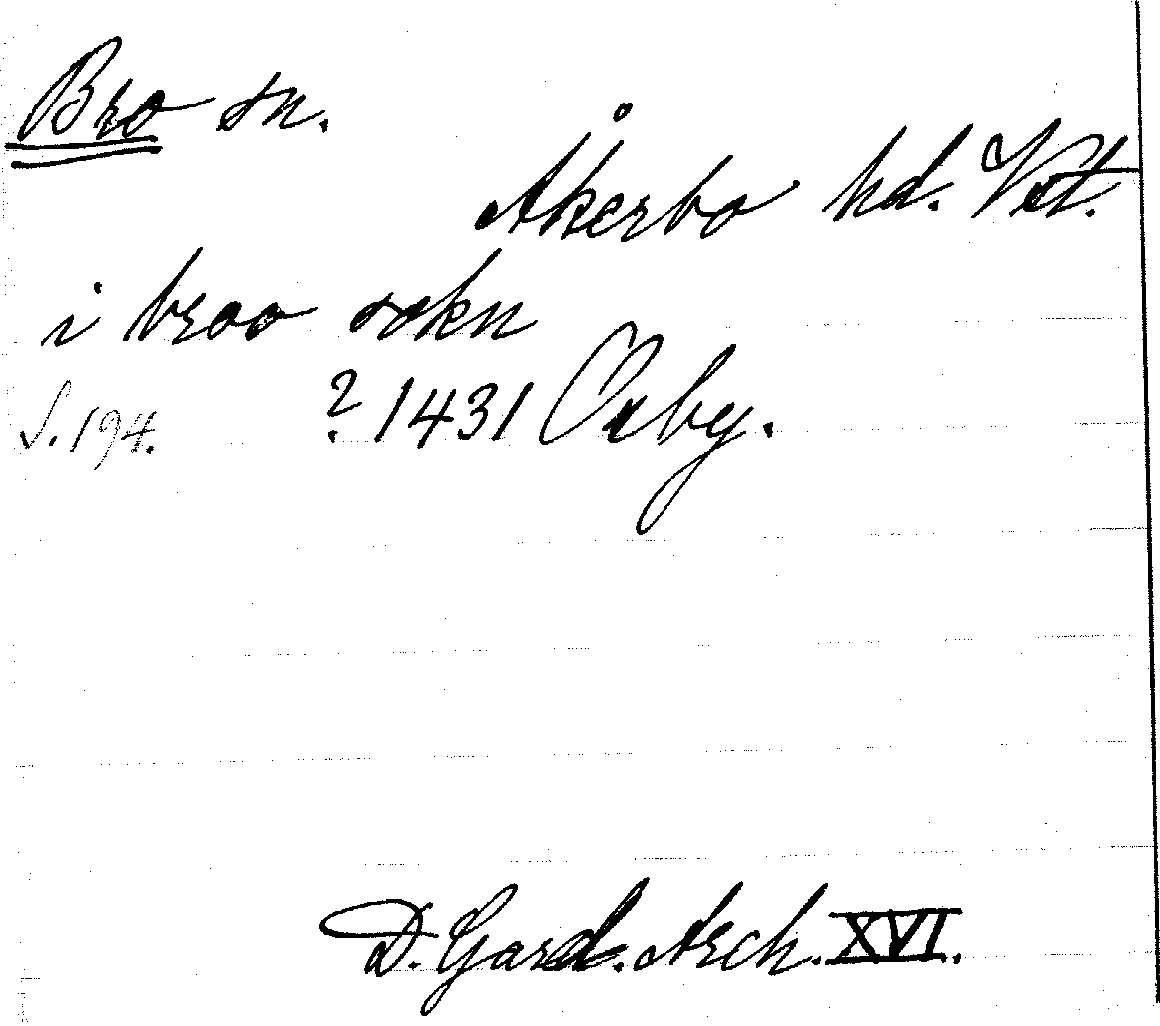 Bro sn.
Åkerbo hd. Vstm.
i broo sokn
? 1431 Oxby.
S. 194.
D. Gard. Arch. XVI.